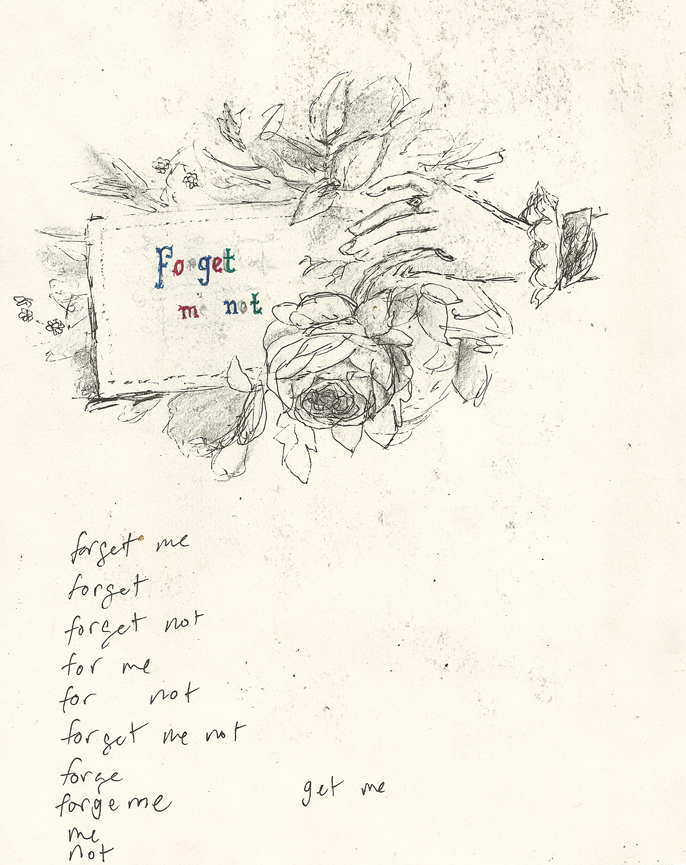 Forget
me not
forget me
forget
forget not
for me
for not
forget me not
forge
forge me get me
me
not